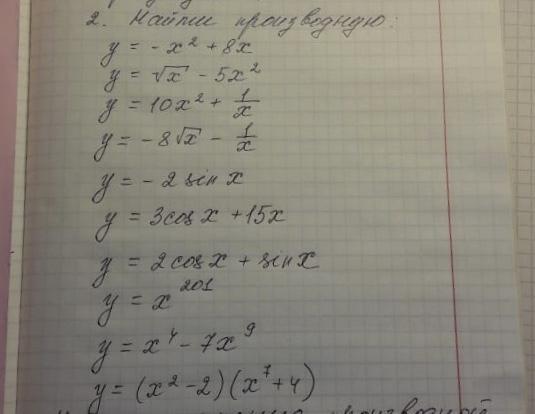 2. Найти производную:
y = - x² + 8x
y = √x - 5x²
y = 10x² + 1/x
y = - 8√x - 1/x
y = - 2 sin x
y = 3cos x + 15x
y = 2cos x + sin x
y = x²⁰¹
y = x⁴ - 7x⁹
y = (x² - 2)(x⁷ + 4)
производной